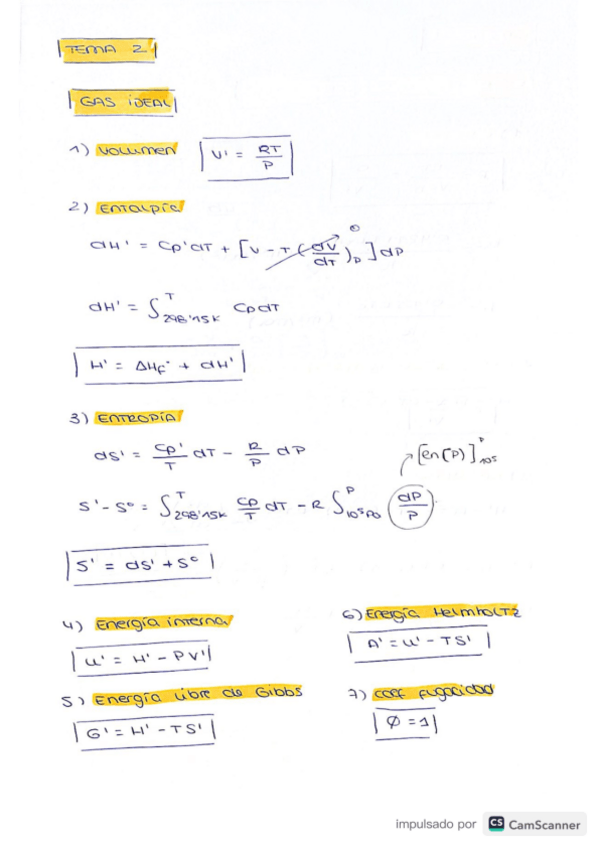 TEMA 2
GAS IDEAL
1) Volumen V' = RT/P
2) Entalpía
dH' = Cp'dT + [V - T (dV/dT)p]dP 0
dH' = ∫ T 298'15K CpdT
H' = ΔHf° + dH'
3) ENTROPÍA
dS' = Cp'/T dT - R/P dP
[ln(P)] P 10⁵
S' - S° = ∫ T 298'15K Cp/T dT - R ∫ P 10⁵Pa dP/P
S' = dS' + S°
4) Energía interna
U' = H' - PV'
5) Energía libre de Gibbs
G' = H' - TS'
6) Energía Helmholtz
A' = U' - TS'
7) coef fugacidad
Ø = 1
impulsado por CS CamScanner